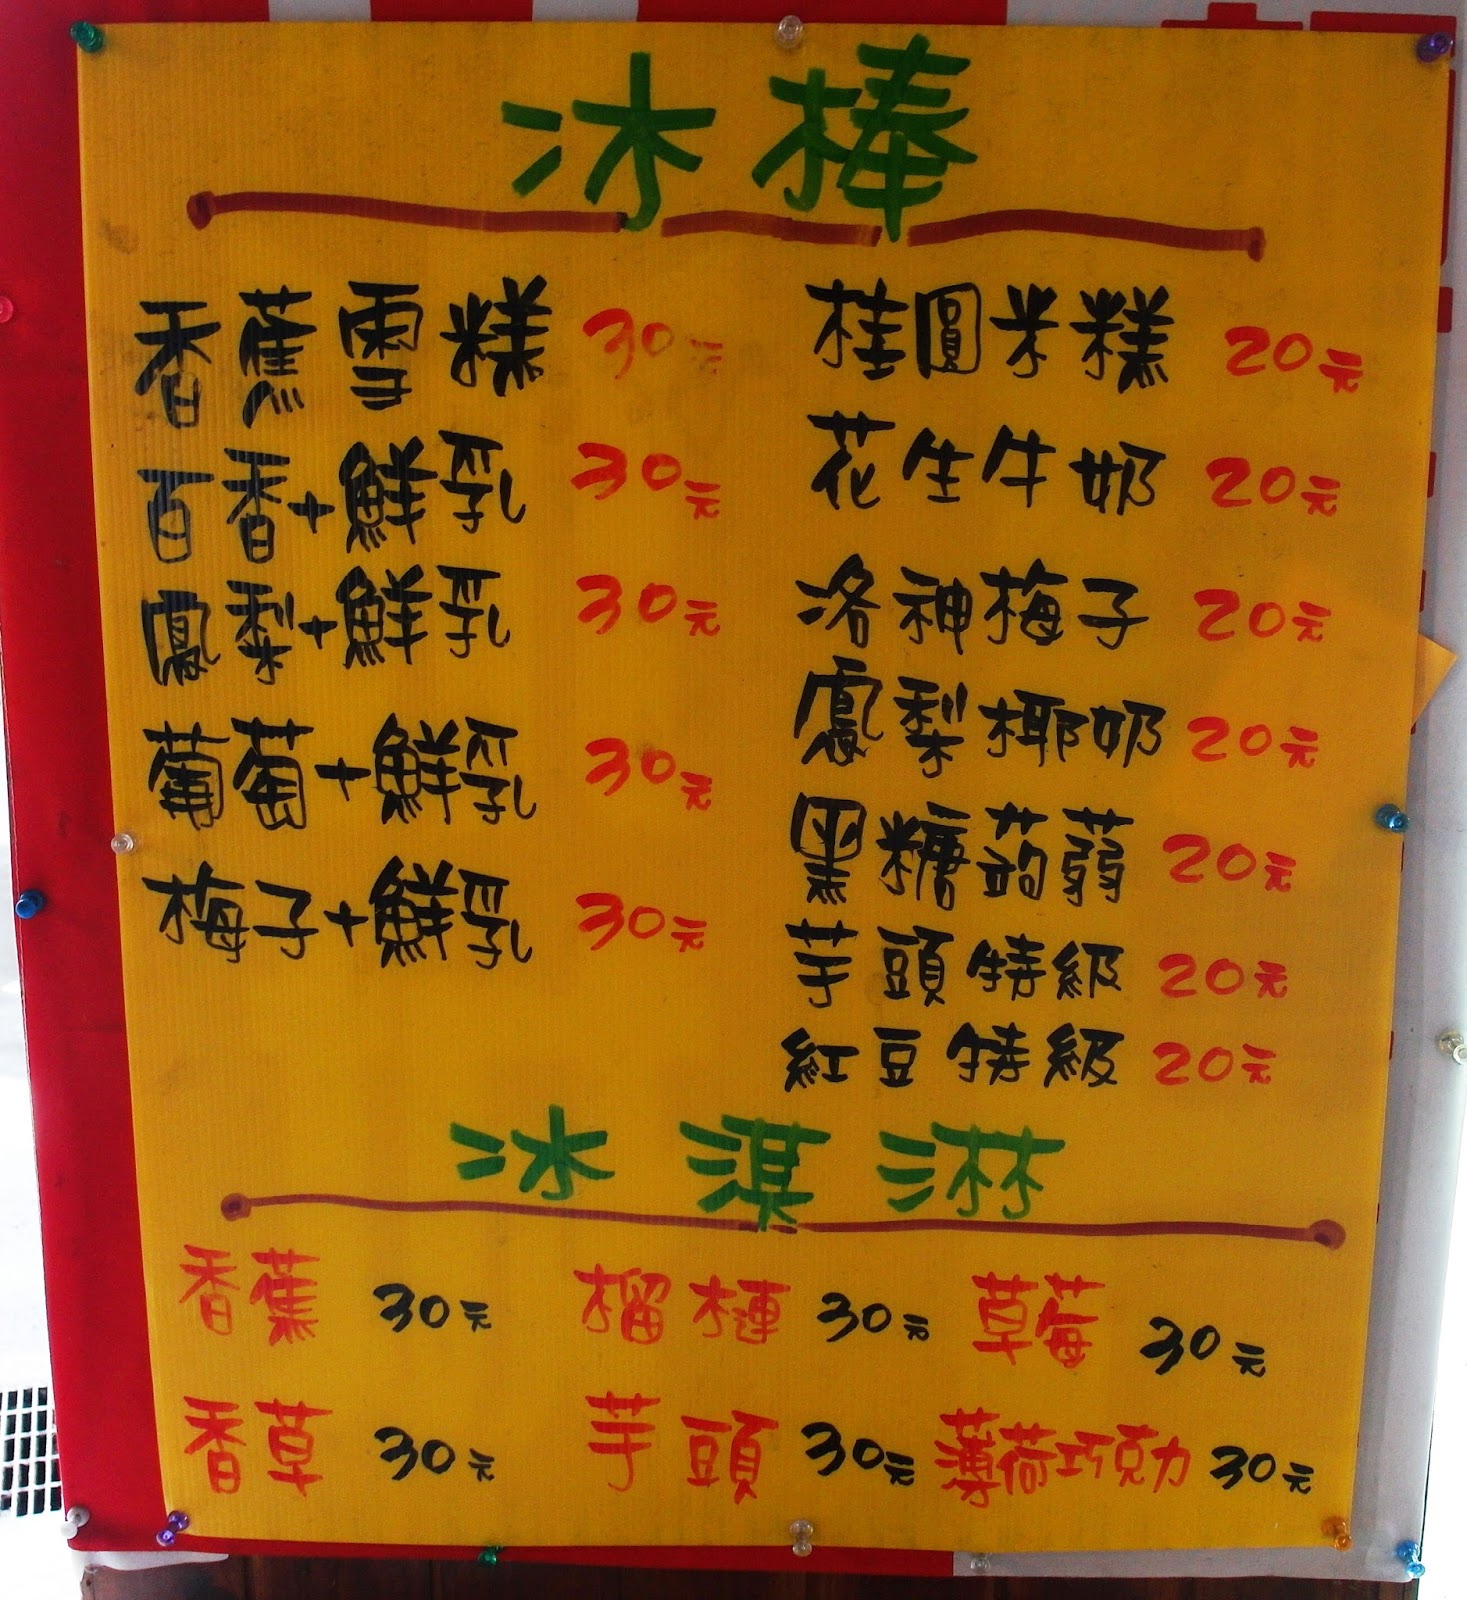 冰棒
香蕉雪糕 30元
百香+鮮乳 30元
鳳梨+鮮乳 30元
葡萄+鮮乳 30元
梅子+鮮乳 30元
桂圓米糕 20元
花生牛奶 20元
洛神梅子 20元
鳳梨椰奶 20元
黑糖蒟蒻 20元
芋頭特級 20元
紅豆特級 20元
冰淇淋
香蕉 30元 榴槤 30元 草莓 30元
香草 30元 芋頭 30元 薄荷巧克力 30元